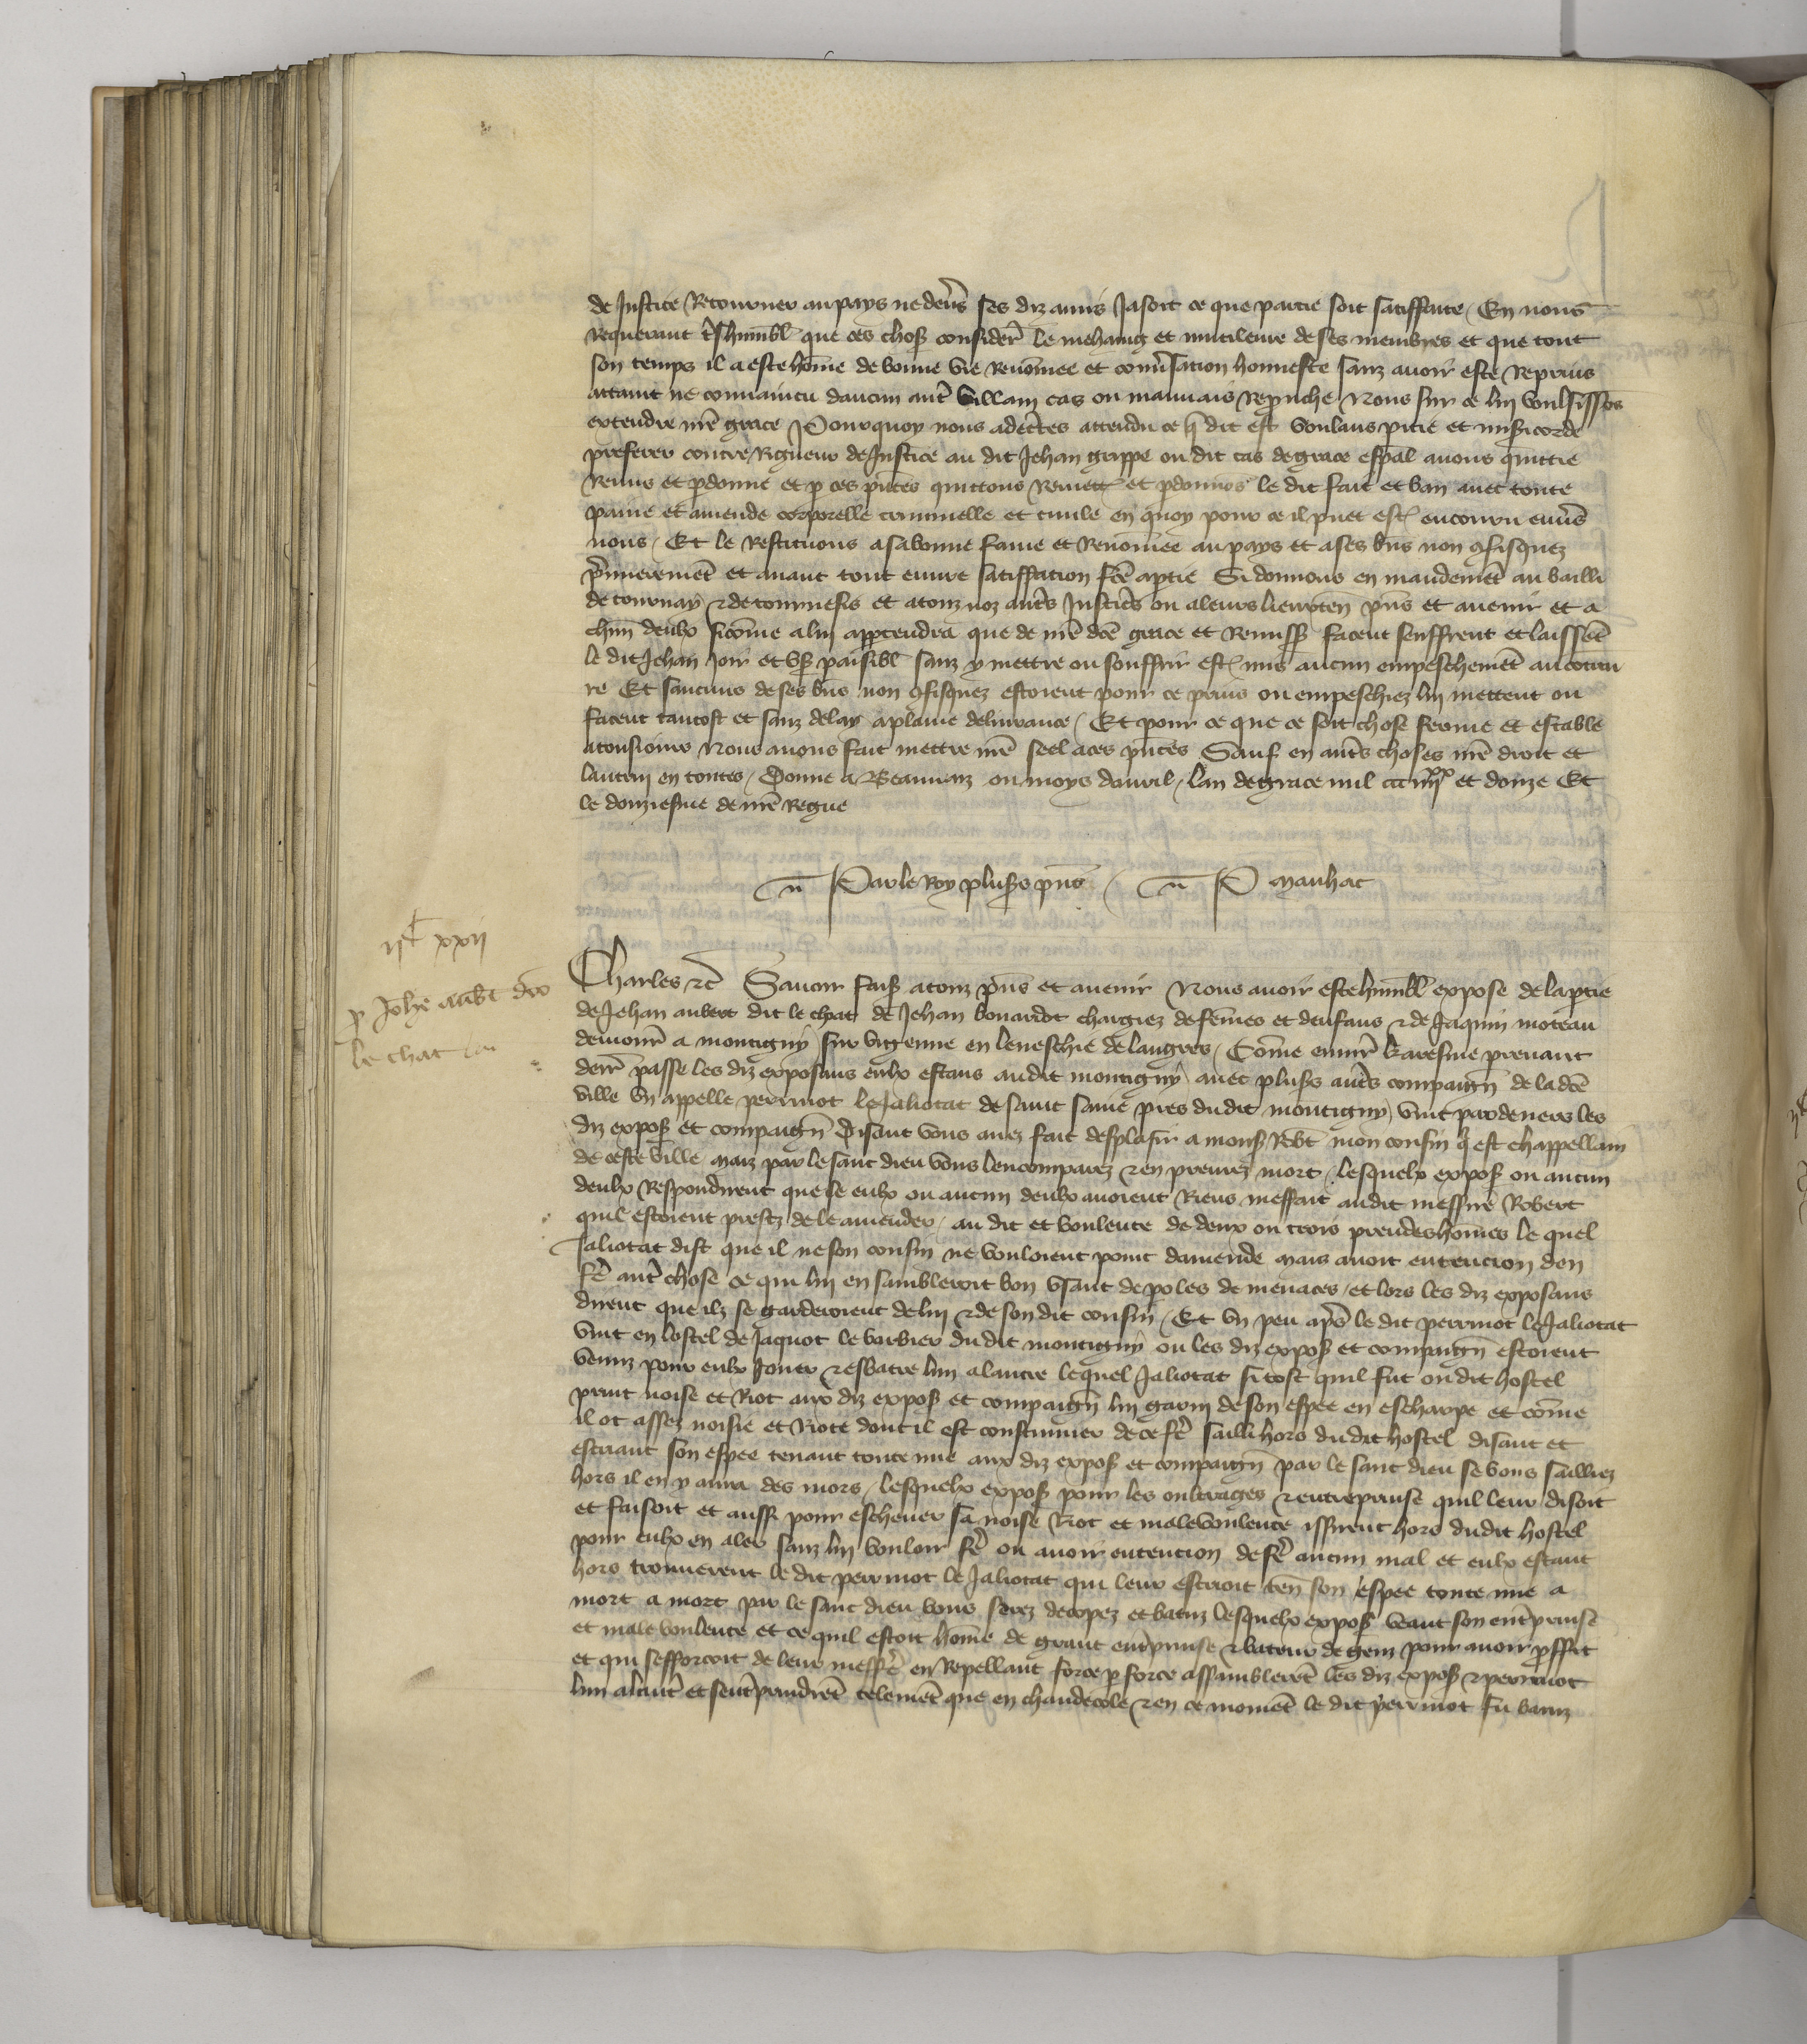 de Justice Retourner au pays ne devs ses diz amis Jasoit ce que partie soit satiffaite / En nous
Requerant tshumbl que ces chos consider le mehaing et mutileure de ses membres et que tout
son temps il a este home de bonne vie Renomee et convsation honneste sanz avoir este Reprins
attaint ne convaincu daucun aut villain cas ou mauvais Reprouche Nous sur ce lui voulsissos
extendre nre grace Pourquoy nous adectes attendu ce q dit est voulans pitie et misicorde
preferer contre Rigueur de Justice au dit Jehan grappe ou dit cas de grace espal avons quittie
Remis et pdonne et p ces pntes quittons Remett et pdonnos le dit fait et ban avec toute
paine et amende corporelle criminelle et civile en quoy pour ce il puet est encouru envs
nous / Et le Restituons a sa bonne fame et Renomee au pays et a ses bns non gfisquez
pmieremet et avant tout euvre satiffation fce aptie Si donnons en mandemet au bailli
de tournay & de tournesis et a touz noz auts Justics ou a leurs lieuxten pns et avenir et a
chun deulx sicome a lui apptendra que de nre dce grace et Remiss facent seuffrent et laisset
le dit Jehan Joir et us paisibl sanz y mettre ou souffrir est mis aucun empeschemet au contrai
re Et saucuns de ses bns non gfisquez estoient pour ce prins ou empeschiez lui mettent ou
facent tantost et sanz delay a plaine delivrance / Et pour ce que ce soit chose ferme et estable
a tousiours Nous avons fait mettre nre seel a ces pntes Sauf en auts choses nre droit et
lautrui en toutes / Donne a Beauvaiz ou moys davril / lan de grace mil ccc iiiixx et douze Et
le douziesme de nre Regne
Par le Roy pluss pns / P Manhac
iic xxii
p Johe aubt dco
le chat
Charles &c Savoir fais a touz pns et avenir Nous avoir este humbl expose de la ptie
de Jehan aubert dit le chat de Jehan bonardot chargiez de femes et denfans & de Jaquin moreau
demour a montigny sur vigenne en leveschie de langres / Come envir karesme prenant
derr passe les diz exposans eulx estans audit montigny avec pluss auts compaign de la dce
ville Un appelle perrinot le Jaliotat de saint sauve pres du dit montigny vint par devers les
diz expos et compaign Disant vous avez fait desplaisir a mons Robt mon cousin q est chappellain
de ceste ville / Maiz par le sanc dieu vous lencomparrez & en prenrez mort / lesquelx expos ou aucun
deulx Respondirent que se eulx ou aucun deulx avoient Riens meffait audit messire Robert
quil estoient prestz de le amender / au dit et voulente de deux ou trois preudeshomes le quel
Jaliotat dist que il ne son cousin ne vouloient point damende mais avoit entencion den
fe aut chose ce qui lui en sambleroit bon usant de poles de menaces / et lors les diz exposans
dirent que ilz se garderoient de lui & de son dit cousin / Et un peu aps le dit perrinot le Jaliotat
vint en lostel de Jaquot le barbier du dit montigny ou les diz expos et compaign estoient
venuz pour eulx Jouer & esbatre lun a lautre lequel Jaliotat si tost quil fut ou dit hostel
print noise et Riot aux diz expos et compaign lui garni de son espee en escharpe et come
il ot assez noisie et Riote dont il est coustumier de ce fe sailli hors du dit hostel disant et
escriant son espee tenant toute nue aux diz expos et compaign par le sanc dieu se vous sailliez
hors il en y aura des mors / lesquelx expos pour les oultrages & entreprinse quil leur disoit
et faisoit et aussi pour eschever sa noise Riot et malevoulente issirent hors dudit hostel
pour eulx en aler sanz lui vouloir fe ou avoir entencion de fe aucun mal et eulx estant
hors trouverent le dit perrinot le Jaliotat qui leur escrioit ten son espee toute nue a
mort a mort par le sanc dieu vous serez decopez et batuz lesquelx expos veant son entprinse
et male voulente et ce quil estoit home de grant entprinse & bateur de gens pour avoir pffit
et qui sefforcoit de leur meffe en Repellant force p force assamblerent les diz expos & perrinot
lun a laut et sentprindret telemet que en chaudecole & en ce momet le dit perrinot fu batuz